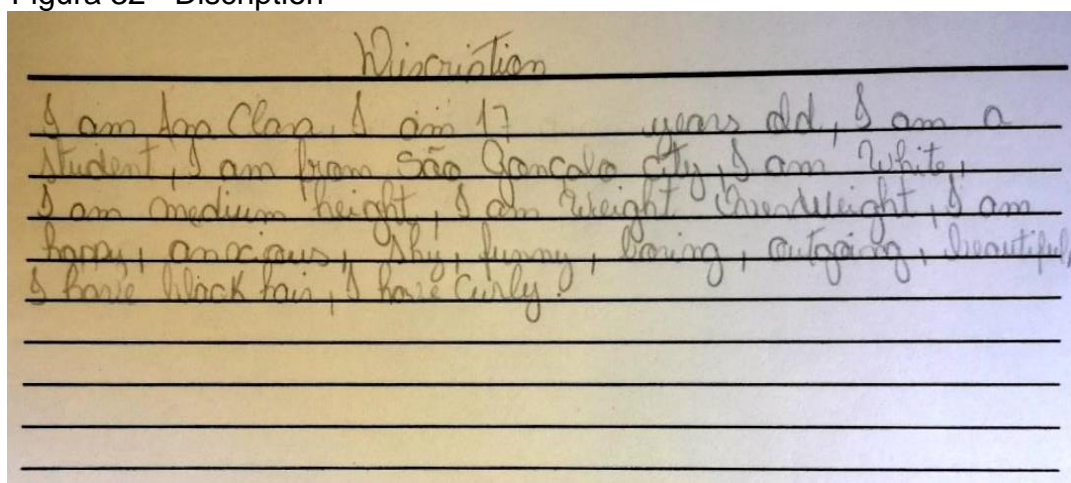 Figura 32 - Discription
Discription
I am Ana Clara, I am 17 years old, I am a
student, I am from São Gonçalo city, I am White,
I am medium height, I am Weight OverWeight, I am
happy, anocious, shy, funny, boring, outgoing, beautiful,
I have black hair, I have Curly.